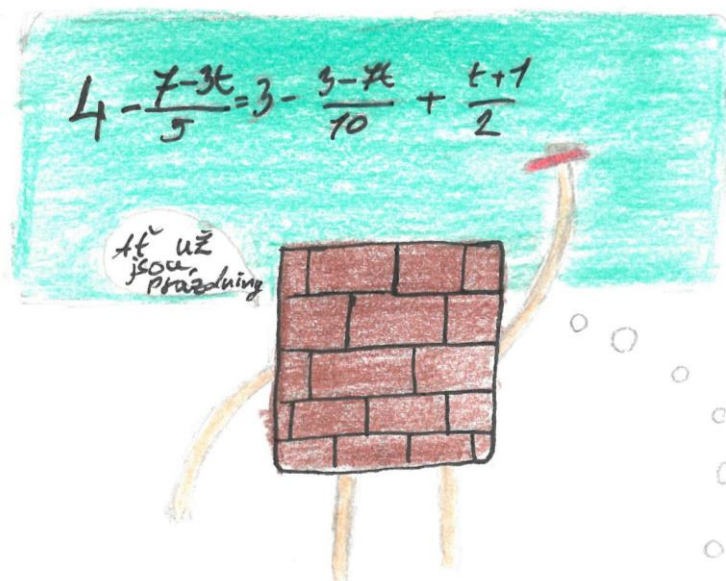 4 - \frac{7-3t}{5} = 3 - \frac{3-7t}{10} + \frac{t+1}{2}
Ať už
jsou
prázdniny